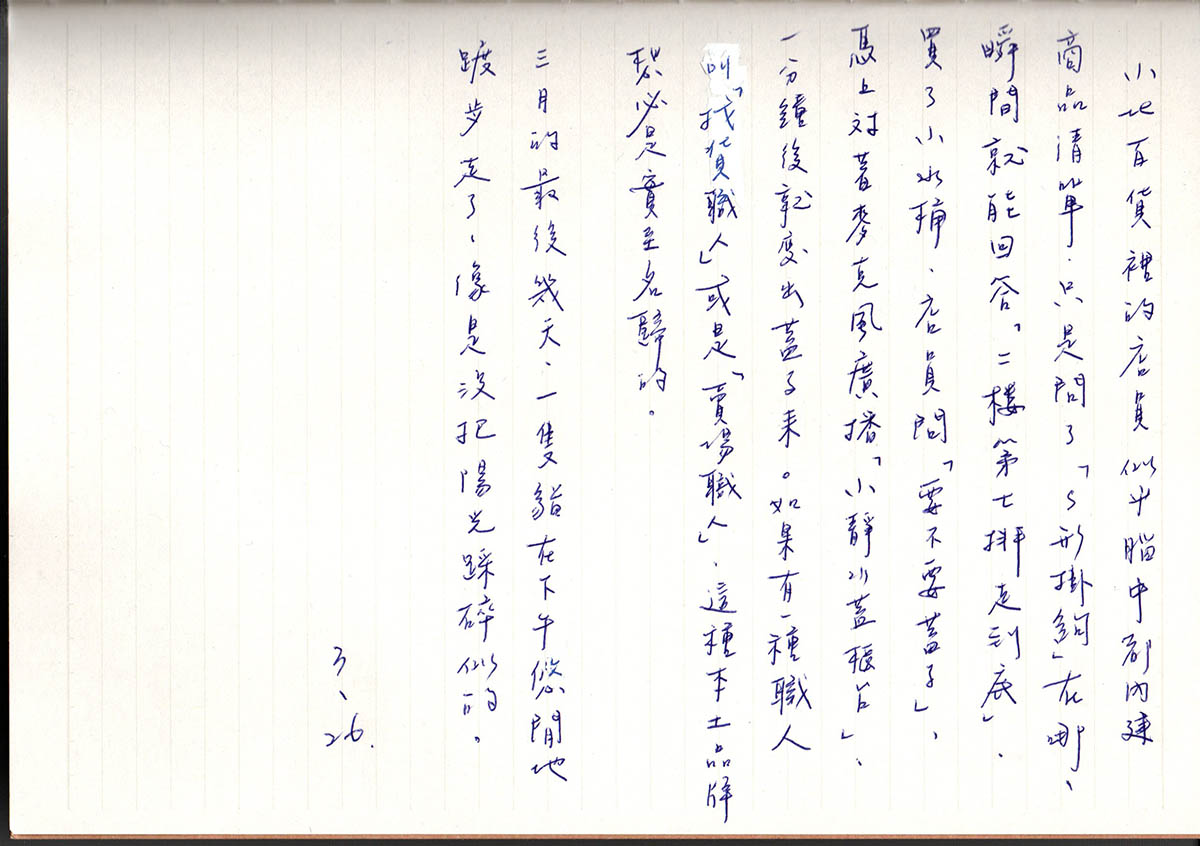 小北百貨裡的店員似乎腦中都內建
商品清單，只是問了「S形掛鉤」在哪、
瞬間就能回答「二樓第七排走到底」、
買了小水桶，店員問「要不要蓋子」、
馬上對著麥克風廣播「小靜水蓋櫃台」、
一分鐘後就变出蓋子來。如果有一種職人
叫「找貨職人」或是「賣場職人」、這種本土品牌
想必是實至名歸的。
三月的最後幾天、一隻貓在下午悠閒地
踱步走了，像是沒把陽光踩碎似的。
3、26.